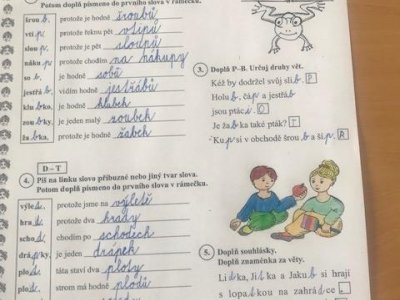 Potom doplň písmeno do prvního slova v rámečku.
šrou b, protože je hodně šroubů
vti p, protože řeknu pět vtipů
slou p, protože je pět sloupů
náku p, protože chodím na nákupy
so b, protože je hodně sobů
jestřá b, vidím hodně jestřábů
klu b ko, protože je hodně
zou b ky, je jeden malý zoubek
ža b ka, protože je hodně žabek
D – T
4. Piš na linku slova příbuzné nebo jiný tvar slova.
Potom doplň písmeno do prvního slova v rámečku.
výle t, protože jsme na výletě
hra d, protože dva hrady
scho d, chodím po schodech
drá p ky, je jeden drápek
plo t, táta staví dva ploty
plo d, strom má hodně plodů
3. Doplň P–B. Urči druhy vět.
Kéž by dodržel svůj sli b. P
Holu b, čá p a jestřá b
jsou ptáci. O
Je ža b ka také pták? T
Ku p si v obchodě šrou b a ši p. R
5. Doplň souhlásky.
Doplň znaménka za věty.
Li d ka, Ji t ka a Jaku b si hrají
s lopa t kou na zahrá d ce.